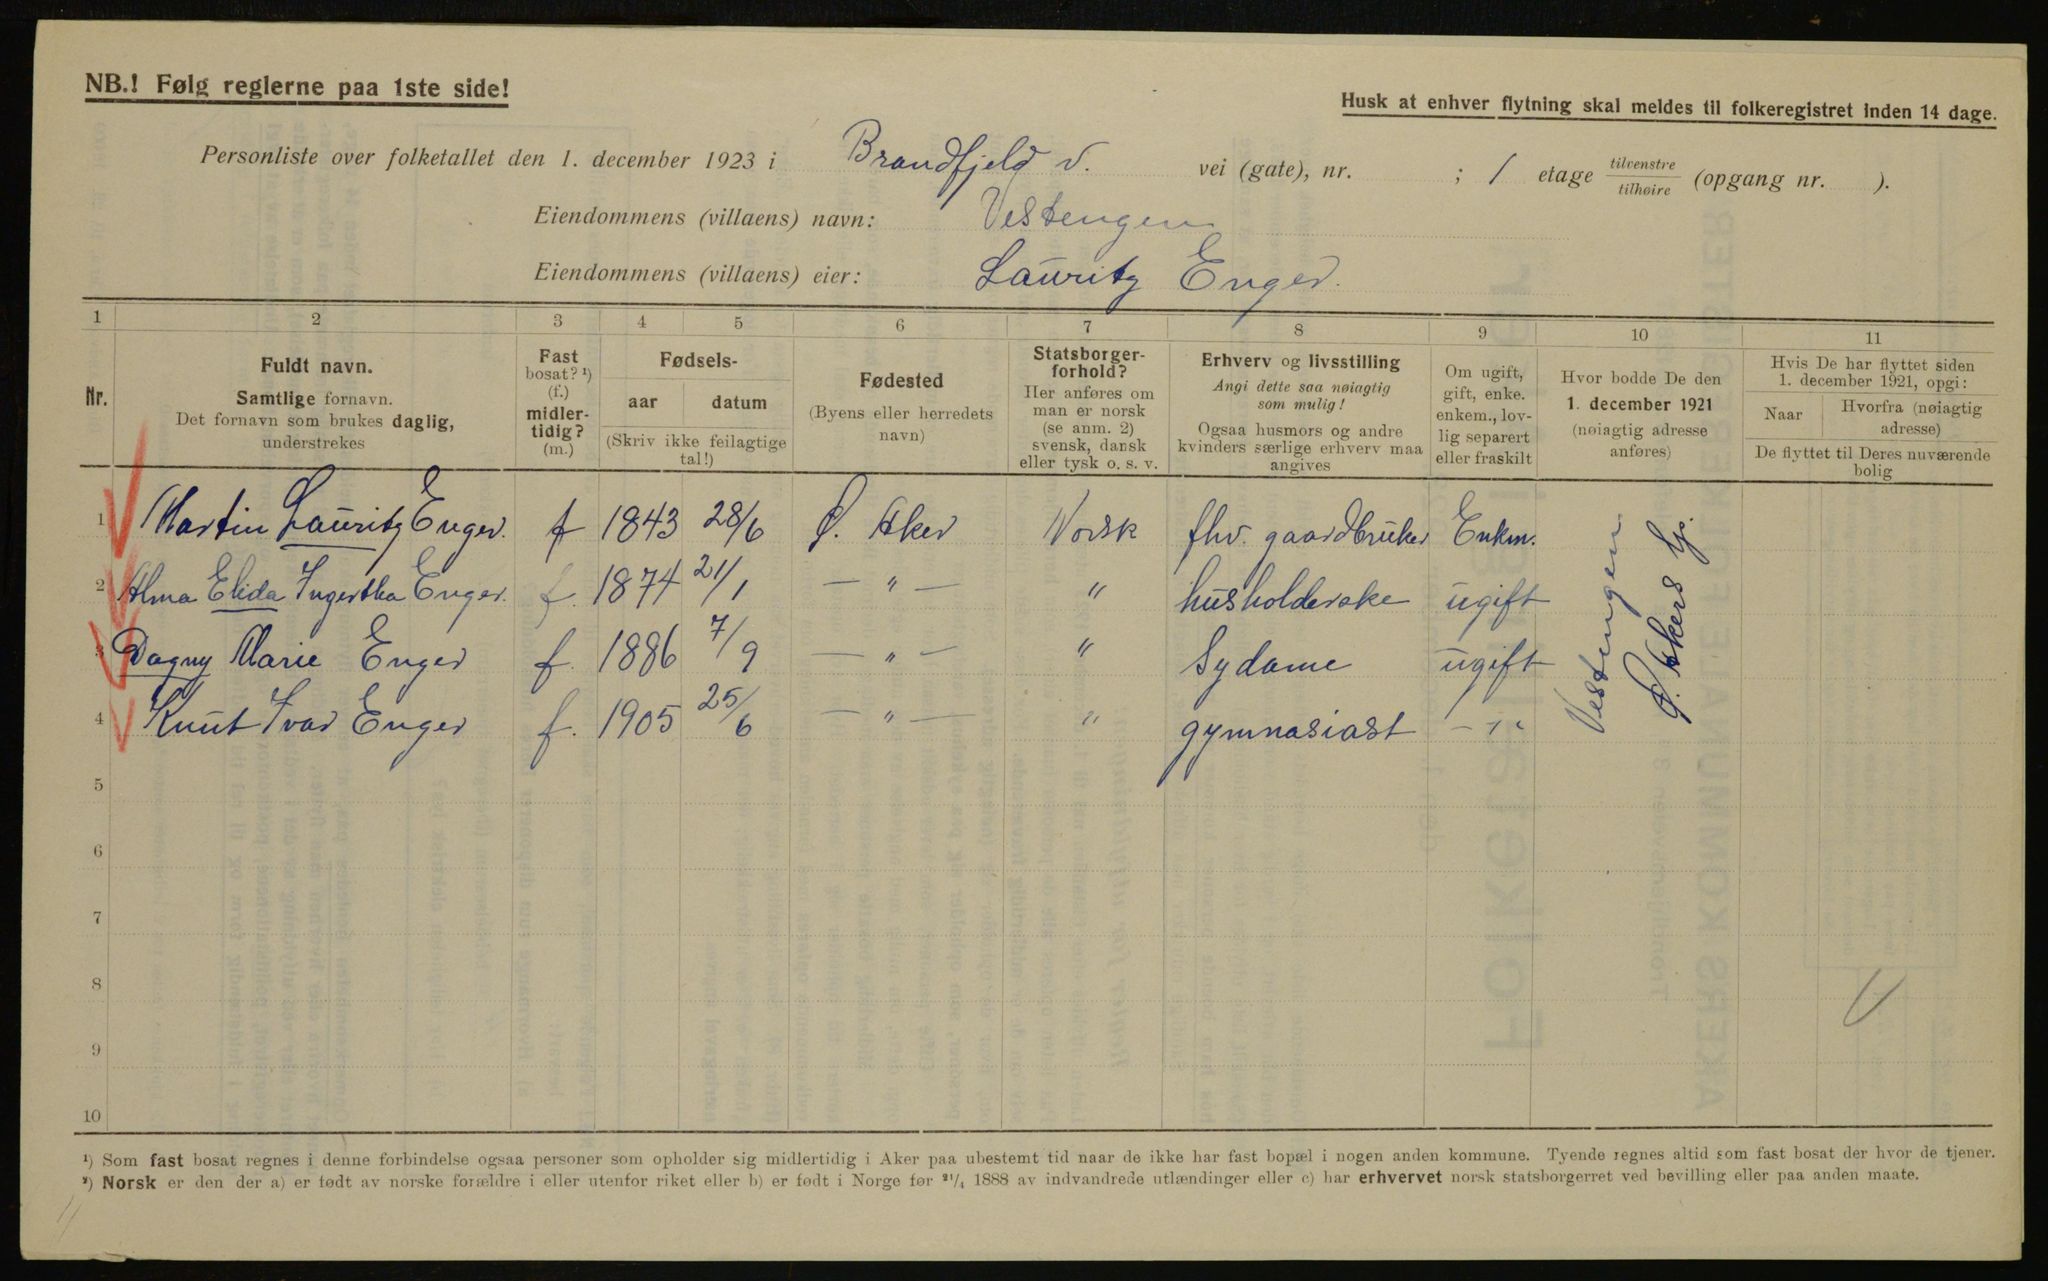 NB.! Følg reglerne paa 1ste side!
Husk at enhver flytning skal meldes til folkeregistret inden 14 dage.
Personliste over folketallet den 1. december 1923 i Brandfjeld v. vei (gate), nr. ; 1 etage tilvenstre / tilhøire (opgang nr. ).
Eiendommens (villaens) navn: Vestengen
Eiendommens (villaens) eier: Lauritz Enger.
1 2 3 4 5 6 7 8 9 10 11
Nr.
Fuldt navn.
Samtlige fornavn.
Det fornavn som brukes daglig,
understrekes
Fast
bosat? ¹)
(f.)
midler-
tidig?
(m.)
Fødsels-
aar datum
(Skriv ikke feilagtige
tal!)
Fødested
(Byens eller herredets
navn)
Statsborger-
forhold?
Her anføres om
man er norsk
(se anm. 2)
svensk, dansk
eller tysk o. s. v.
Erhverv og livsstilling
Angi dette saa nøiagtig
som mulig!
Ogsaa husmors og andre
kvinders særlige erhverv maa
angives
Om ugift,
gift, enke.
enkem., lov-
lig separert
eller fraskilt
Hvor bodde De den
1. december 1921
(nøiagtig adresse
anføres)
Hvis De har flyttet siden
1. december 1921, opgi:
Naar Hvorfra (nøiagtig
adresse)
De flyttet til Deres nuværende
bolig
1 Martin Lauritz Enger. f 1843 28/6 Ø. Aker Norsk fhv. gaardbruker Enkm.
2 Alma Elida Ingertha Enger. f. 1874 21/1 — " — " husholderske ugift
3 Dagny Marie Enger f. 1886 7/9 — " — " Sydame ugift
4 Knut Ivar Enger f. 1905 25/6 — " — " gymnasiast — " —
Vestengen
Ø. Akers
5
6
7
8
9
10
¹) Som fast bosat regnes i denne forbindelse ogsaa personer som opholder sig midlertidig i Aker paa ubestemt tid naar de ikke har fast bopæl i nogen anden kommune. Tyende regnes altid som fast bosat der hvor de tjener.
²) Norsk er den der a) er født av norske forældre i eller utenfor riket eller b) er født i Norge før 21/4 1888 av indvandrede utlændinger eller c) har erhvervet norsk statsborgerret ved bevilling eller paa anden maate.